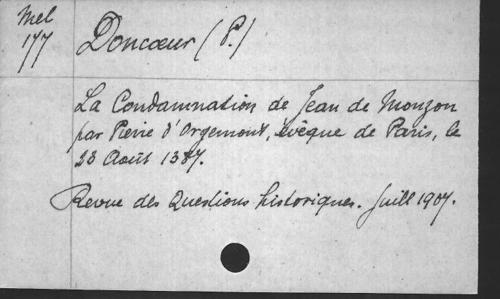 Mel
177
Doncœur (P.)
La Condamnation de Jean de Monzon
par Pierre d'Orgemont, évêque de Paris, le
23 Août 1387.
Revue des Questions historiques. Juill 1907.